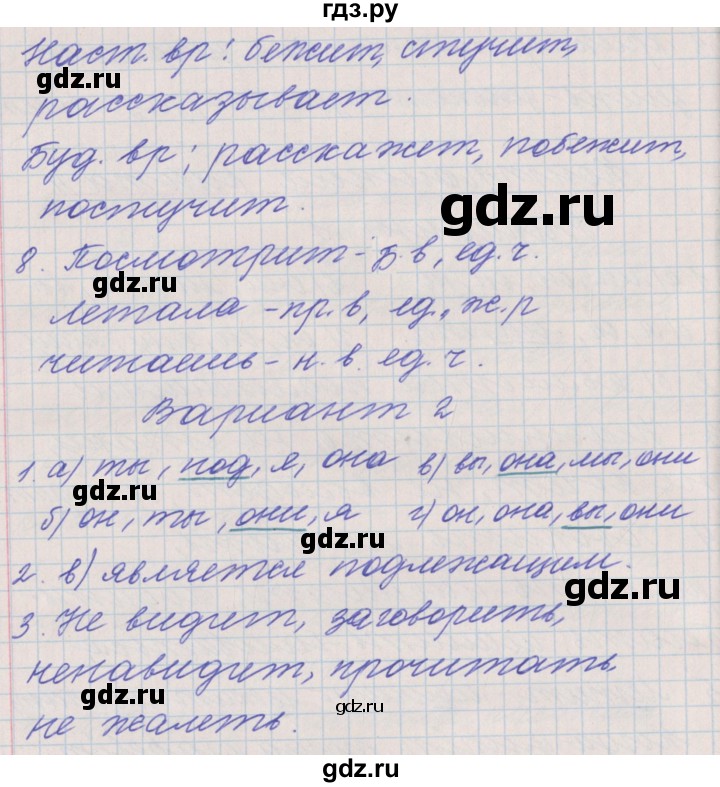 гдз.ру
Наст. вр: бежит, стучит,
gdz.ru
рассказывает.
Буд. вр; расскажет, побежит,
gdz.ru
постучит.
gdz.ru
8. Посмотрит - Б.в, ед.ч.
gdz.ru
летала - пр.в, ед., ж.р
читаешь - н.в. ед.ч.
Вариант 2
1. а) ты, под, я, она в) вы, она, мы, они
gdz.ru
б) он, ты, они, я г) он, она, вы, они
gdz.ru
2. в) является подлежащим.
gdz.ru
3. Не видит, заговорить,
ненавидит, прочитать,
gdz.ru
gdz.ru
не жалеть.
gdz.ru